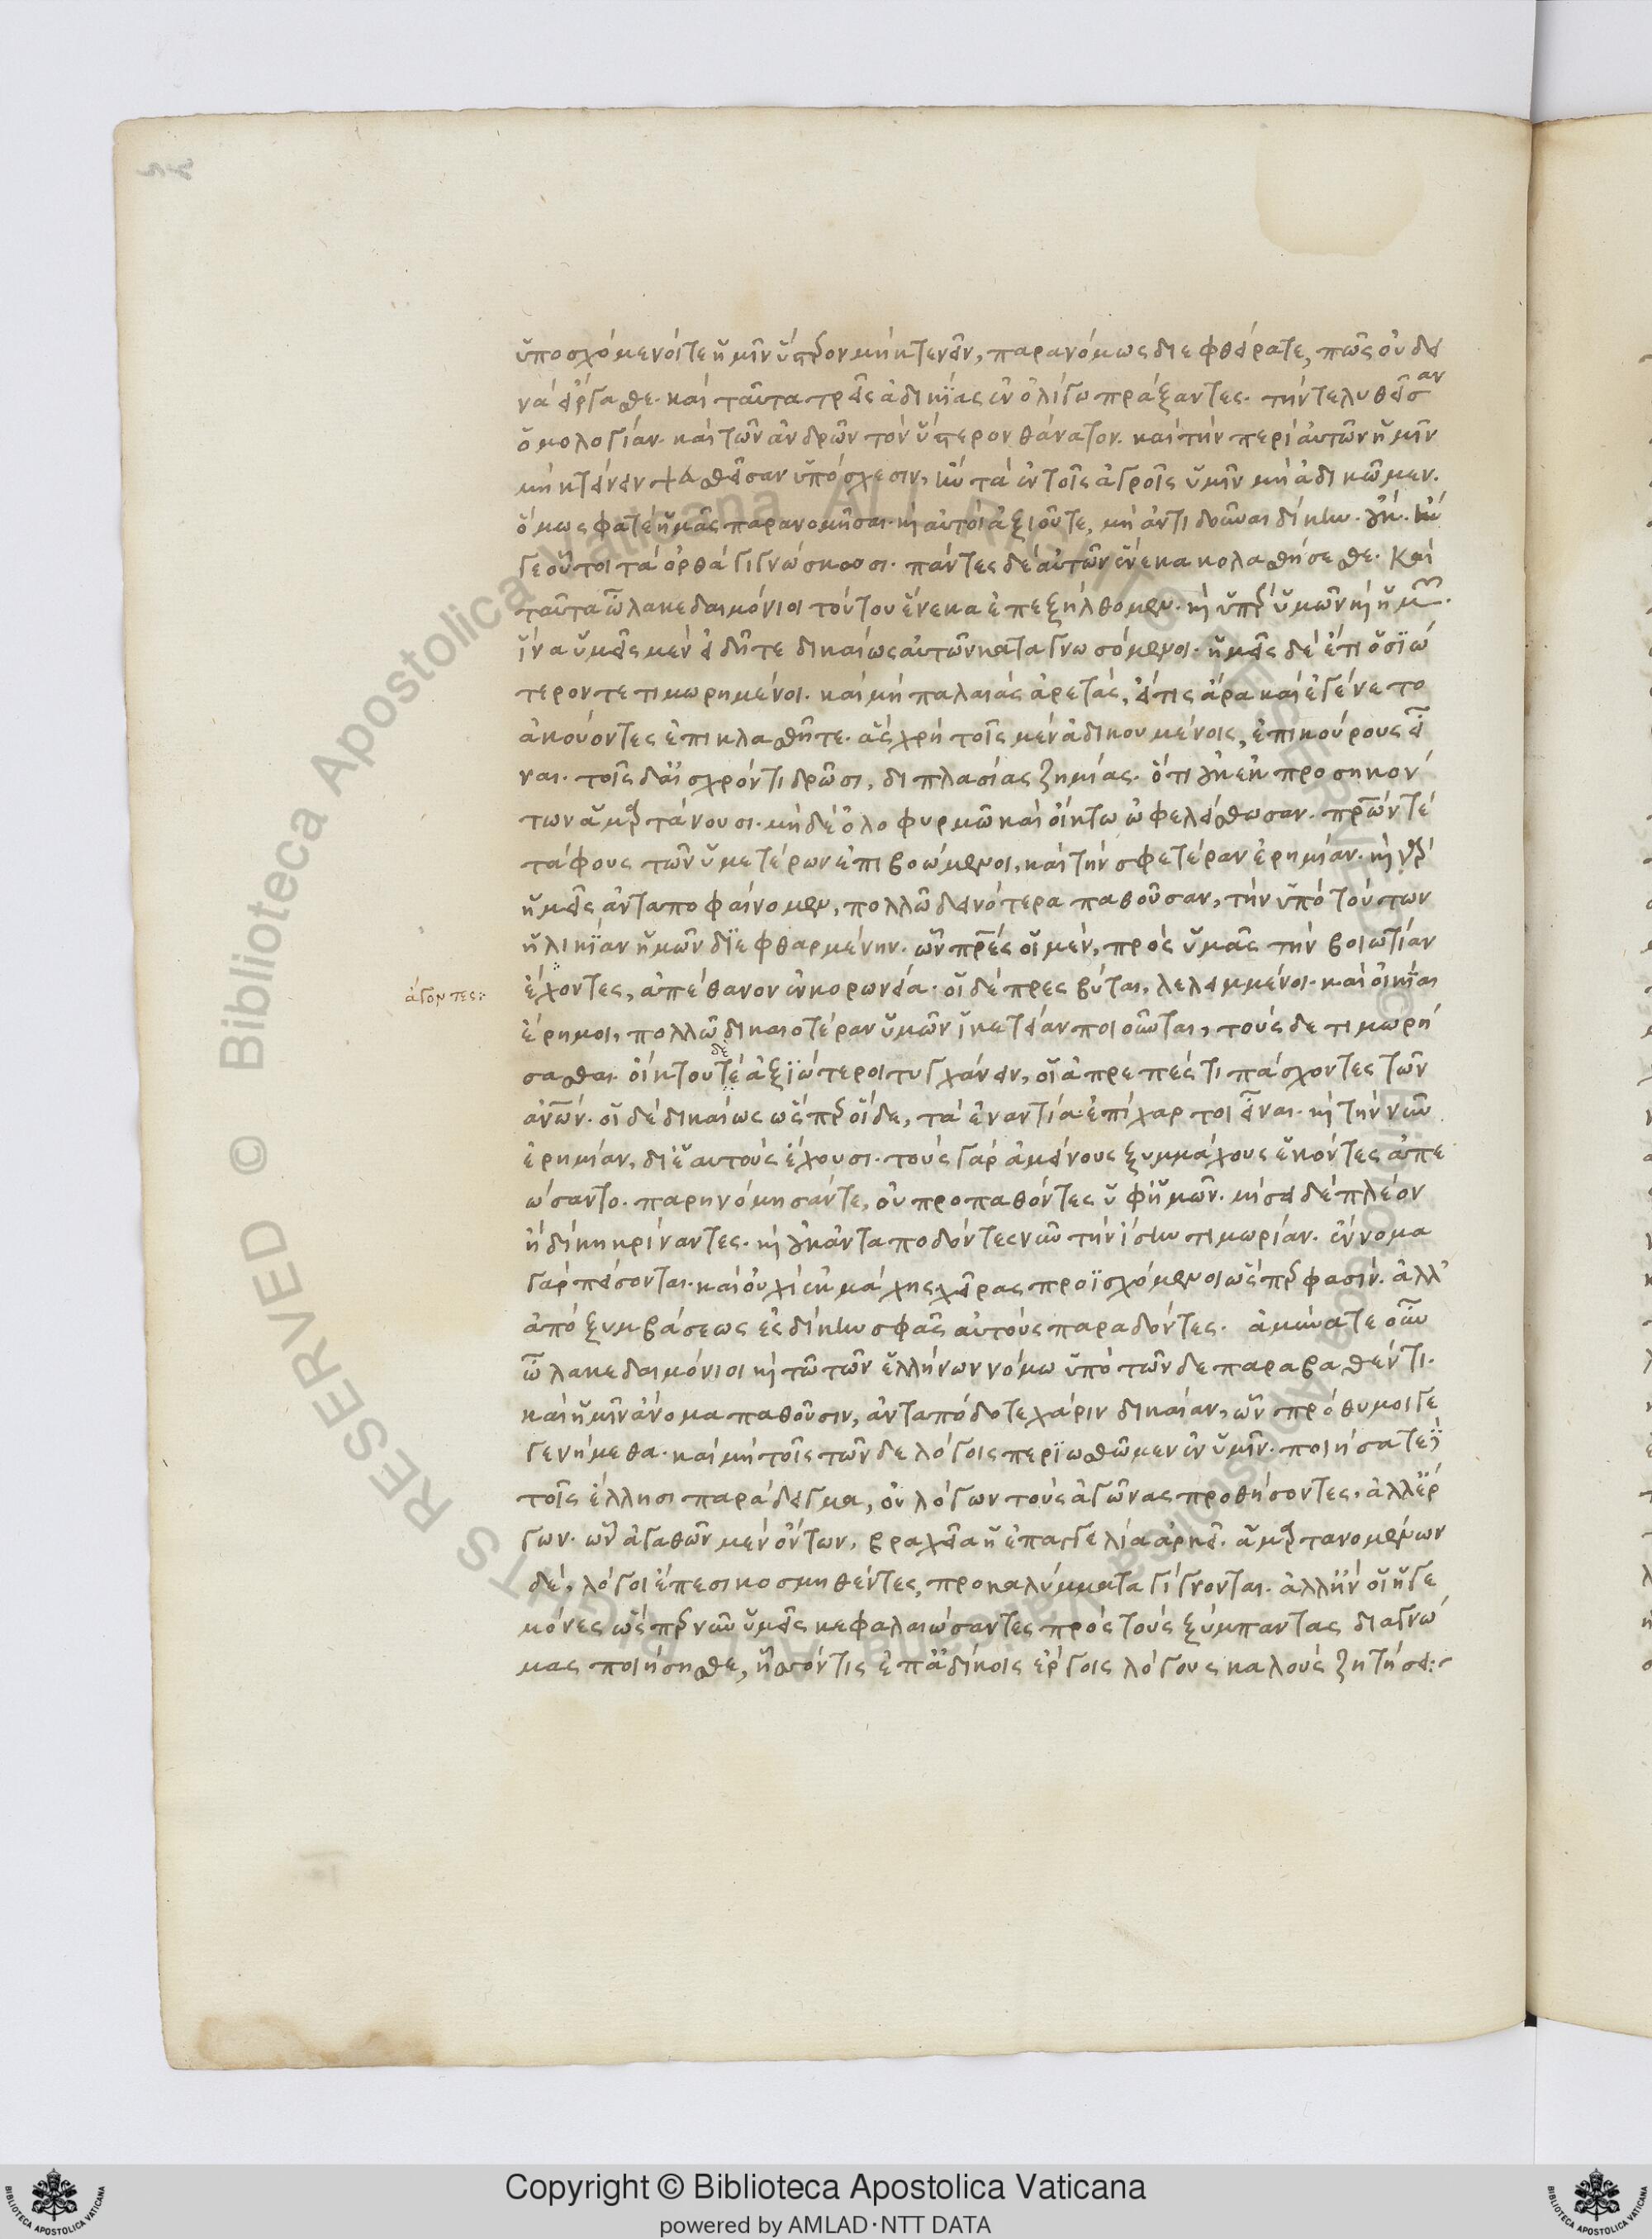 ὑποσχόμενοί τε ἡμῖν ὕστερον μὴ κτενεῖν, παρανόμως διεφθείρατε, πῶς οὐ δει
νὰ εἴργασθε. καὶ ταῦτα τρεῖς ἀδικίας ἐν ὀλίγω πράξαντες. τήν τε λυθεῖσαν
ὁμολογίαν. καὶ τῶν ἀνδρῶν τὸν ὕστερον θάνατον. καὶ τὴν περὶ αὐτῶν ἡμῖν
μὴ κτείνειν ψευσθεῖσαν ὑπόσχεσιν, ἢν τὰ ἐν τοῖς ἀγροῖς ὑμῖν μὴ ἀδικῶμεν.
ὅμως φατὲ ἡμᾶς παρανομῆσαι. καὶ αὐτοὶ ἀξιοῦτε, μὴ ἀντιδοῦναι δίκην. οὔκ. ἤν
γε οὗτοι τὰ ὀρθὰ γιγνώσκωσι. πάντες δὲ αὐτῶν ἕνεκα κολασθήσεσθε. Καὶ
ταῦτα ὦ λακεδαιμόνιοι τούτου ἕνεκα ἐπεξήλθομεν. καὶ ὑπὲρ ὑμῶν καὶ ἡμῶν.
ἵνα ὑμεῖς μὲν εἰδῆτε δικαίως αὐτῶν καταγνωσόμενοι. ἡμεῖς δὲ ἔτι ὁσιώ
τερόν τε τιμωρημένοι. καὶ μὴ παλαιὰς ἀρετάς, εἴ τις ἄρα καὶ ἐγένετο
ἀκούοντες ἐπικλασθῆτε. ἃς χρὴ τοῖς μὲν ἀδικουμένοις, ἐπικούρους εἶ
ναι. τοῖς δ' αἰσχρόν τι δρῶσι, διπλασίας ζημίας. ὅτι οὐκ ἐκ προσηκόν
των ἁμαρτάνουσι. μηδὲ ὀλοφυρμῶ καὶ οἴκτω ὠφελείσθωσαν. πατέρων τέ
τάφους τῶν ὑμετέρων ἐπιβοώμενοι, καὶ τὴν σφετέραν ἐρημίαν. καὶ γὰρ
ἡμεῖς ἀνταποφαίνομεν, πολλῶ δεινότερα παθοῦσαν, τὴν ὑπὸ τούτων
ἡλικίαν ἡμῶν διεφθαρμένην. ὧν πατέρες οἱ μέν, πρὸς ὑμᾶς τὴν βοιωτίαν
ἄγοντες:
ἔχοντες, ἀπέθανον ἐν κορωνεία. οἱ δὲ πρεσβύται, λελειμμένοι. καὶ οἰκίαι
ἔρημοι, πολλῶ δικαιοτέραν ὑμῶν ἱκετείαν ποιοῦνται, τούσδε τιμωρή
σασθαι. οἴκτου τὲ δὲ ἀξιώτεροι τυγχάνειν, οἱ ἀπρεπές τι πάσχοντες τῶν
ἀνθρώπων. οἱ δὲ δικαίως ὥσπερ οἵδε, τὰ ἐναντία ἐπίχαρτοι εἶναι. καὶ τὴν νῦν
ἐρημίαν, δι' ἑαυτοὺς ἔχουσι. τοὺς γὰρ ἀμείνους ξυμμάχους ἑκόντες ἀπε
ώσαντο. παρηνόμησάν τε, οὐ προπαθόντες ὑφ' ἡμῶν. μίσει δὲ πλέον
ἢ δίκη κρίναντες. καὶ οὐκ ἀνταποδόντες νῦν τὴν ἴσην τιμωρίαν. ἔννομα
γὰρ πείσονται. καὶ οὐχὶ ἐκ μάχης χεῖρας προϊσχόμενοι ὥσπερ φασίν. ἀλλ'
ἀπὸ ξυμβάσεως ἐς δίκην σφᾶς αὐτοὺς παραδόντες. ἀμύνατε οὖν
ὦ λακεδαιμόνιοι καὶ τῶ τῶν ἑλλήνων νόμω ὑπὸ τῶνδε παραβαθέντι.
καὶ ἡμῖν ἄνομα παθοῦσιν, ἀνταπόδοτε χάριν δικαίαν, ὧν πρόθυμοι γε
γενήμεθα. καὶ μὴ τοῖς τῶνδε λόγοις περιωσθῶμεν ἐν ὑμῖν. ποιήσατε
τοῖς ἕλλησι παράδειγμα, οὐ λόγων τοὺς ἀγῶνας προθήσοντες. ἀλλ' ἔρ
γων. ὧν ἀγαθῶν μὲν ὄντων, βραχεῖα ἡ ἐπαγγελία ἀρκεῖ. ἁμαρτανομένων
δέ, λόγοι ἔπεσι κοσμηθέντες, προκαλύμματα γίγνονται. ἀλλ' ἢν οἱ ἡγε
μόνες ὥσπερ νῦν ὑμεῖς κεφαλαιώσαντες πρὸς τοὺς ξύμπαντας διαγνώ
μας ποιήσησθε, ἧσσόν τις ἐπ' ἀδίκοις ἔργοις λόγους καλοὺς ζητήσει:
Copyright © Biblioteca Apostolica Vaticana
powered by AMLAD·NTT DATA